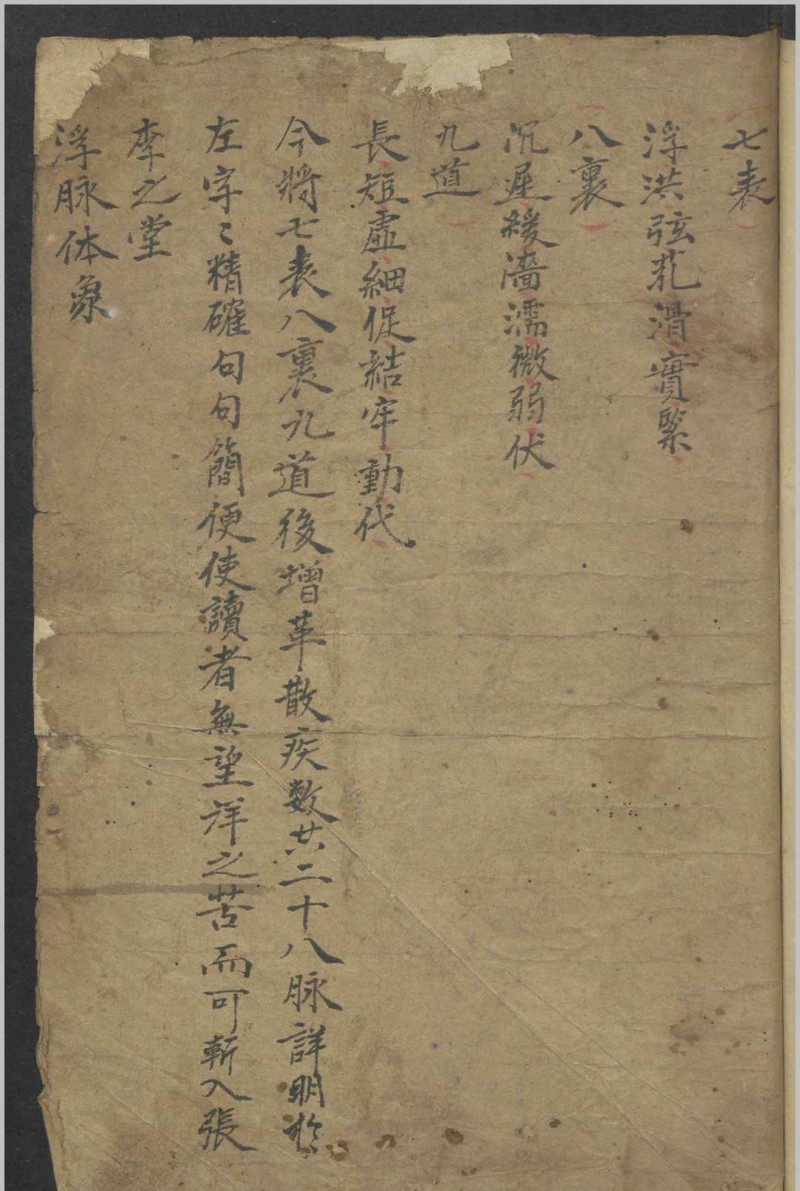 七表
浮洪弦芤滑實緊
八裏
沉遲緩濇濡微弱伏
九道
長短虛細促結牢動代
今將七表八裏九道後增革散疾数共二十八脉詳明於
左字〻精確句句簡便使讀者無望洋之苦而可漸入張
李之堂
浮脉体象